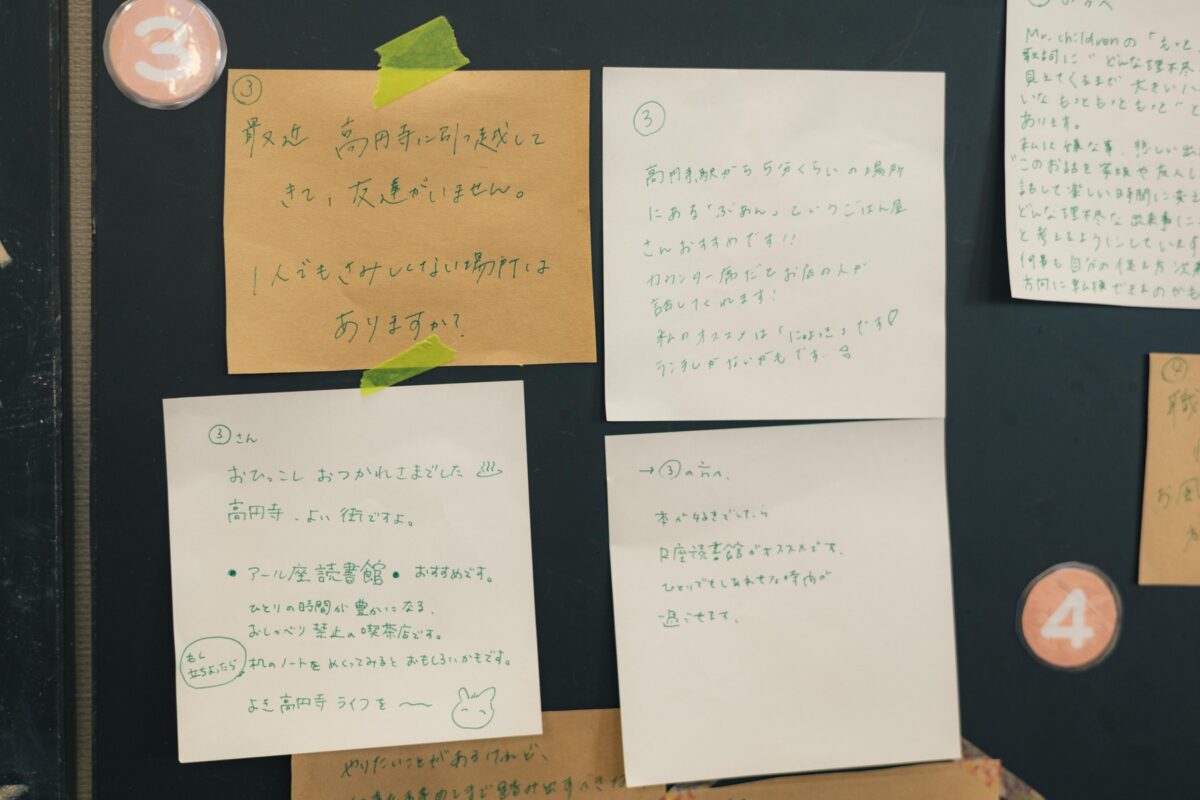 3
③
最近 高円寺に引っ越して
きて、友達がいません。
1人でもさみしくない場所は
ありますか?
③
高円寺駅から5分くらいの場所
にある「ぶあん」というごはん屋
さんおすすめです!!
カウンター席だとお店の人が
話してくれます!
私のオススメは「にょっき」です♡
ランチしかないかもです。
③さん
おひっこし おつかれさまでした ♨
高円寺、よい街ですよ。
• アール座読書館 • おすすめです。
ひとりの時間が豊かになる、
おしゃべり禁止の喫茶店です。
もし
立ちよったら
机のノートをめくってみるとおもしろいかもです。
よき高円寺ライフを〜
→③の方へ、
本が好きでしたら
R座読書館がオススメです。
ひとりでもしあわせな時間が
過ごせます。
の方へ
Mr.childrenの「もっと
歌詞に"どんな理不尽
見えてくるまで 大きい
いな もっともっともっと"と
あります。
私は嫌な事、悲しい出
"このお話を家族や友人
話して楽しい時間に変え
どんな理不尽な出来事に
と考えるようにしています
何事も自分の捉え方次第
方向に転換できるのかも
④
職
お風
4
やりたいことがあるけれど、
踏み出すべきな